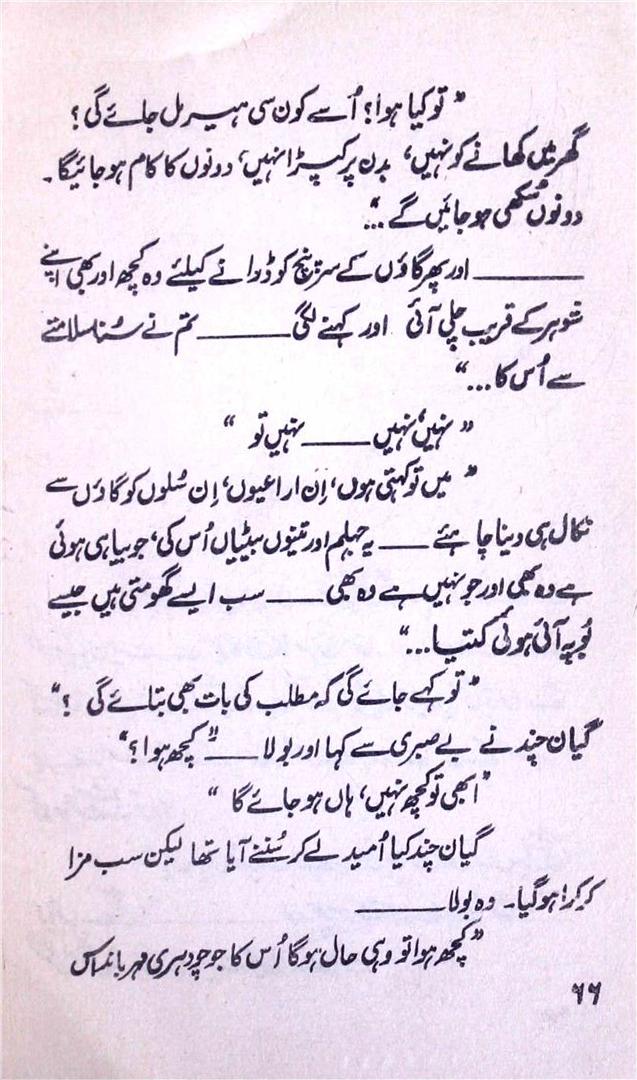 ”تو کیا ہوا؟ اُسے کون سی ہیر مل جائے گی؟
گھر میں کھانے کو نہیں، بدن پر کپڑا نہیں، دونوں کا کام ہو جائیگا۔
دونوں سُکھی ہو جائیں گے...“
——— اور پھر گاؤں کے سرپنچ کو ڈرانے کیلئے وہ کچھ اور بھی اپنے
شوہر کے قریب چلی آئی اور کہنے لگی ——— تم نے سُنا سلامتے
سے اُس کا...“
”نہیں، نہیں ——— نہیں تو“
”میں تو کہتی ہوں، اِن اراعیوں، اِن مُسلوں کو گاؤں سے
نکال ہی دینا چاہئے ——— یہ جہلم اور تینوں بیٹیاں اُس کی، جو بیاہی ہوئی
ہے وہ بھی اور جو نہیں ہے وہ بھی ——— سب ایسے گھومتی ہیں جیسے
بُو پہ آئی ہوئی کُتیا...“
”تو کہے جائے گی کہ مطلب کی بات بھی بتائے گی؟“
گیان چند نے بے صبری سے کہا اور بولا ——— ”کچھ ہوا؟“
”ابھی تو کچھ نہیں، ہاں ہو جائے گا“
گیان چند کیا اُمید لے کر سُننے آیا تھا لیکن سب مزا
کرکرا ہو گیا۔ وہ بولا ———
”کچھ ہوا تو وہی حال ہوگا اُس کا جو چودہری مہربان داس
۶۶